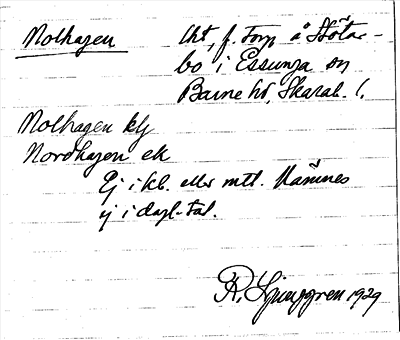 Nolhagen
Äbt, f. Torp å Stötar-
bo i Essunga sn
Barne hd, Skarab. l.
Nolhagen klj
Nordhagen ek
Ej i kb. eller mtl. Nämnes
ej i dagl. tal.
R. Ljunggren 1929